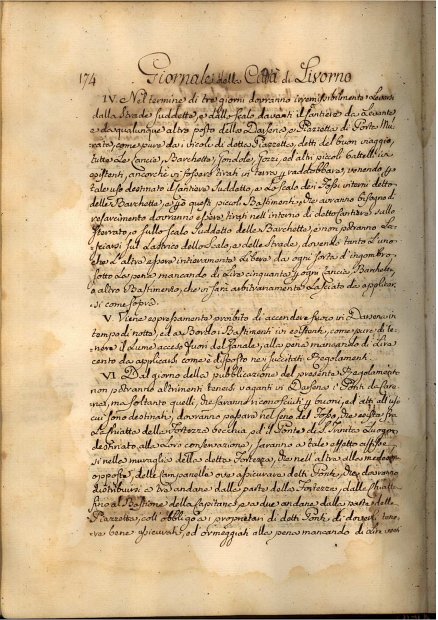 174 Giornale della Città di Livorno
IV. Nel termine di tre giorni dovranno irremissibilmente Levarsi
dalla Strade suddette, e dallo scalo davanti il Cantiere da Levante
e da qualunque altro posto della Darsena, e Piazzetta di Porta Mu-
rata, come pure da i vicoli di dette Piazzette, detti del buon viaggio,
tutte Le Lancie, Barchette, Gondole, Gozzi, ed altri piccoli battelli ivi
esistenti, ancorchè vi fossero tirati in terra p raddobbare, venendo p
tale uso destinato il Cantiere Suddetto, e Lo scalo dei Fossi vicino detto
delle Barchette, e p questi piccoli Bastimenti, che avranno bisogno di
risarcimento dovranno essere tirati nell'interno di detto Cantiere sullo
sterrato, o sullo scalo suddetto delle Barchette, e non potranno La-
sciarsi sul Lastrico dello Scalo, e delle Strade, dovendo tanto L'uno
che L'altro essere intieramente Libero da ogni sorta d'ingombro
sotto La pena mancando di Lire cinquanta p ogni Lancia, Barchetta,
o altro Bastimento, che vi sarà arbitrariamente Lasciato da applicar-
si come sopra.
V. Viene espressamente proibito di accendere fuoco in Darsena in
tempo di notte, ed a Bordo i Bastimenti ivi esistenti, come pure di te-
nere il Lume acceso fuori del fanale, alla pena mancando di Lire
cento da applicarsi come è disposto ne i succitati Regolamenti.
VI. Dal giorno della pubblicazione del presente Regolamento
non potranno altrimenti tenersi vaganti in Darsena i Ponti da Care-
na, ma soltanto quelli, che saranno riconosciuti p buoni, ed atti all'uso
cui sono destinati, dovranno passare nel seno del Fosso, che esiste fra
La Fortezza vecchia, ed il Ponte della S. Trinita Luogo
destinato alla Loro conservazione, saranno a tale effetto affisse
si nelle muraglie della detta Fortezza, che nell'altre alle medesime
opposte, delle campanelle ove assicurare detti Ponti, che dovranno
distribuirsi a tre andane dalla parte della Fortezza, dalla
fino al Bastione della Capitana, e a due andane dalla parte della
Piazzetta, coll'obbligo a i proprietari di detti Ponti di doverli tene-
re bene assicurati, ed ormeggiati alla pena mancando di Lire